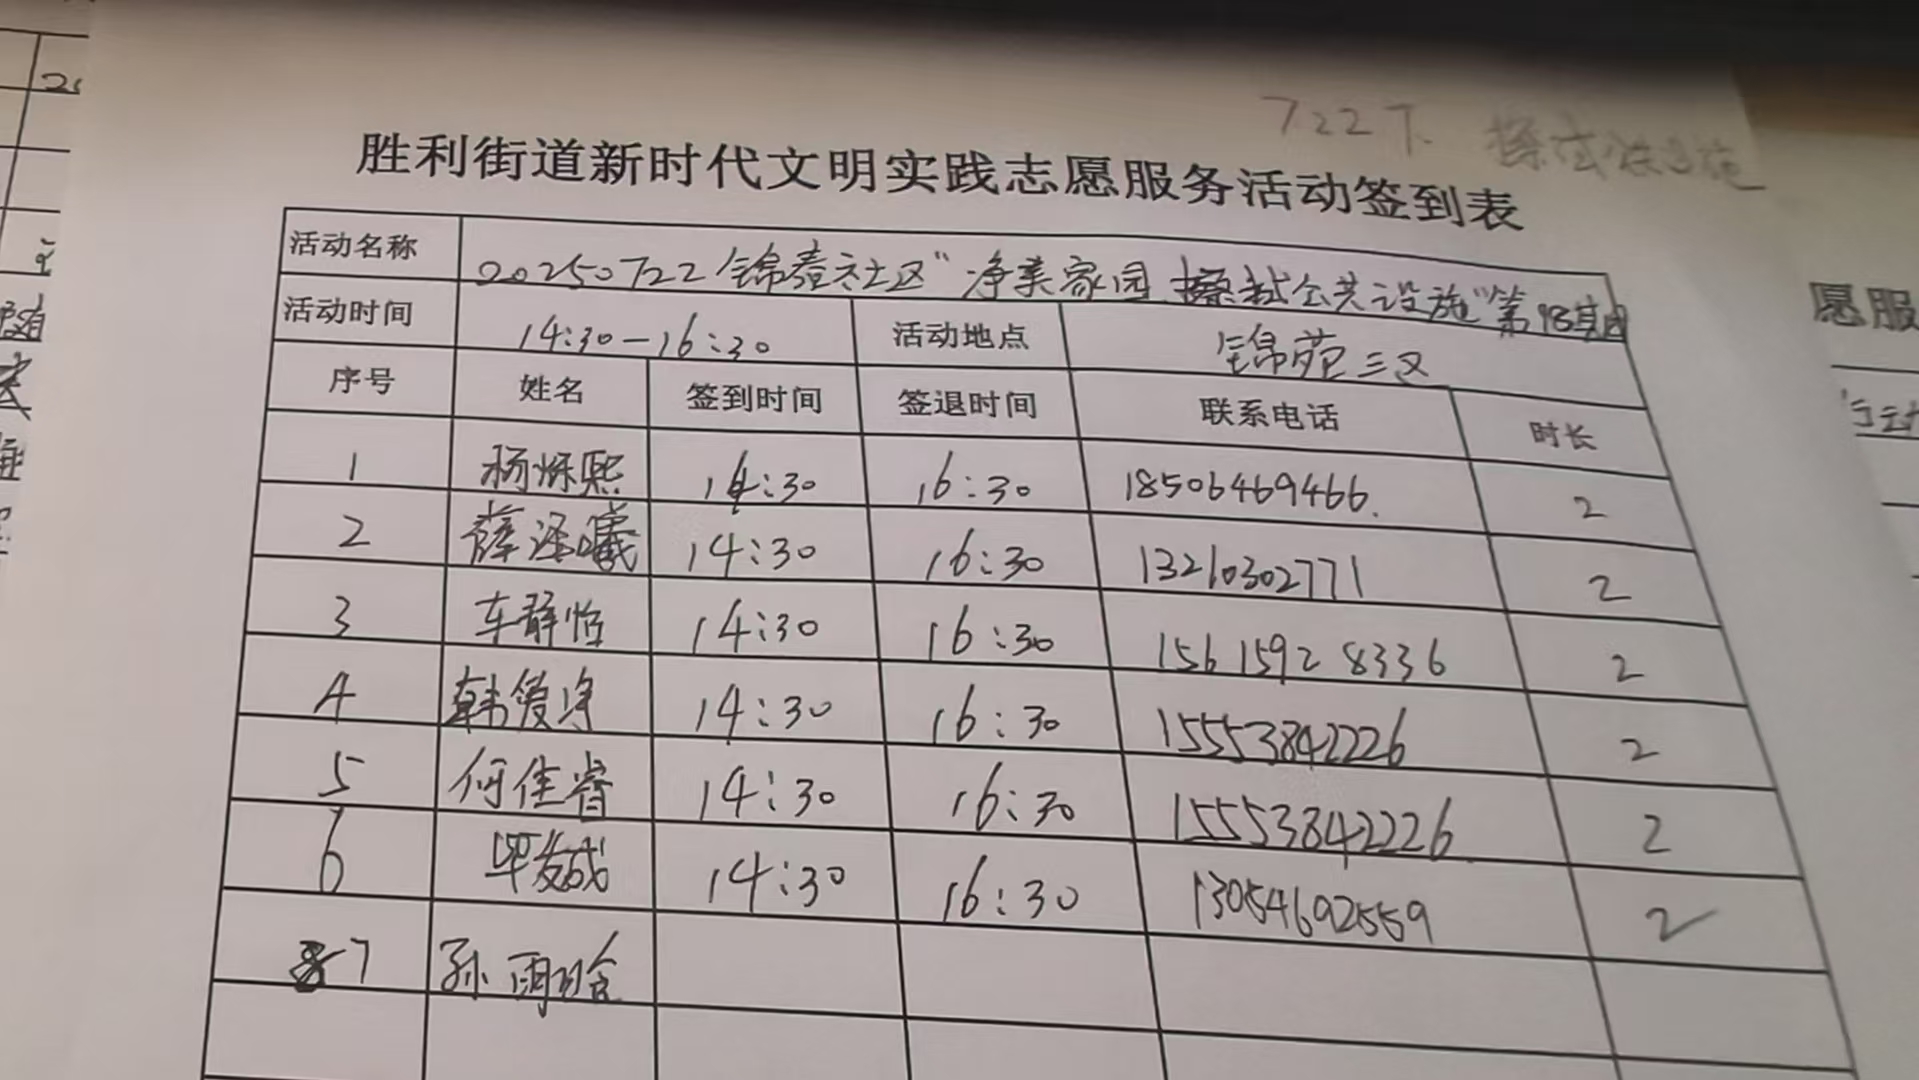 7.22下 擦拭公共设施
胜利街道新时代文明实践志愿服务活动签到表
活动名称 20250722锦泰社区"净美家园 擦拭公共设施"第98期
活动时间 14:30—16:30 活动地点 锦苑三区
序号 姓名 签到时间 签退时间 联系电话 时长
1 杨烁熙 14:30 16:30 18506469466. 2
2 薛泽曦 14:30 16:30 13210302771 2
3 车静怡 14:30 16:30 156 1592 8336 2
4 韩爱净 14:30 16:30 15553842226 2
5 何佳睿 14:30 16:30 15553842226 2
6 毕发成 14:30 16:30 13054692559 2
7 孙雨晗
愿服